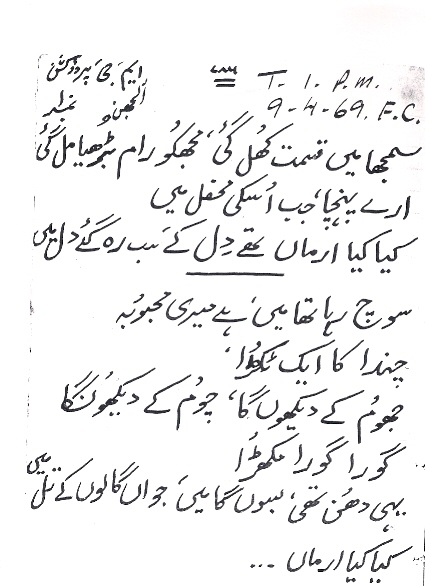 ایم جی پروڈکشن
۷۸۶
T. 1. P.M.
الجھن
9-4-69. F.C.
سمجھا میں قسمت کھل گئی، مجھکو رام بڑھیا مل گئی
ارے پہنچا جب اُسکی محفل میں
کیا کیا ارماں تھے دِل کے سب رہ گئے دل میں
سوچ رہا تھا میں، ہے میری محبوبہ
چندا کا ایک ٹکڑا،
جھوم کے دیکھوں گا، چوم کے دیکھونگا
گورا گورا مکھڑا
یہی دھُن تھی، بسوں گا میں، جواں گالوں کے تل میں
کیا کیا ارماں ...